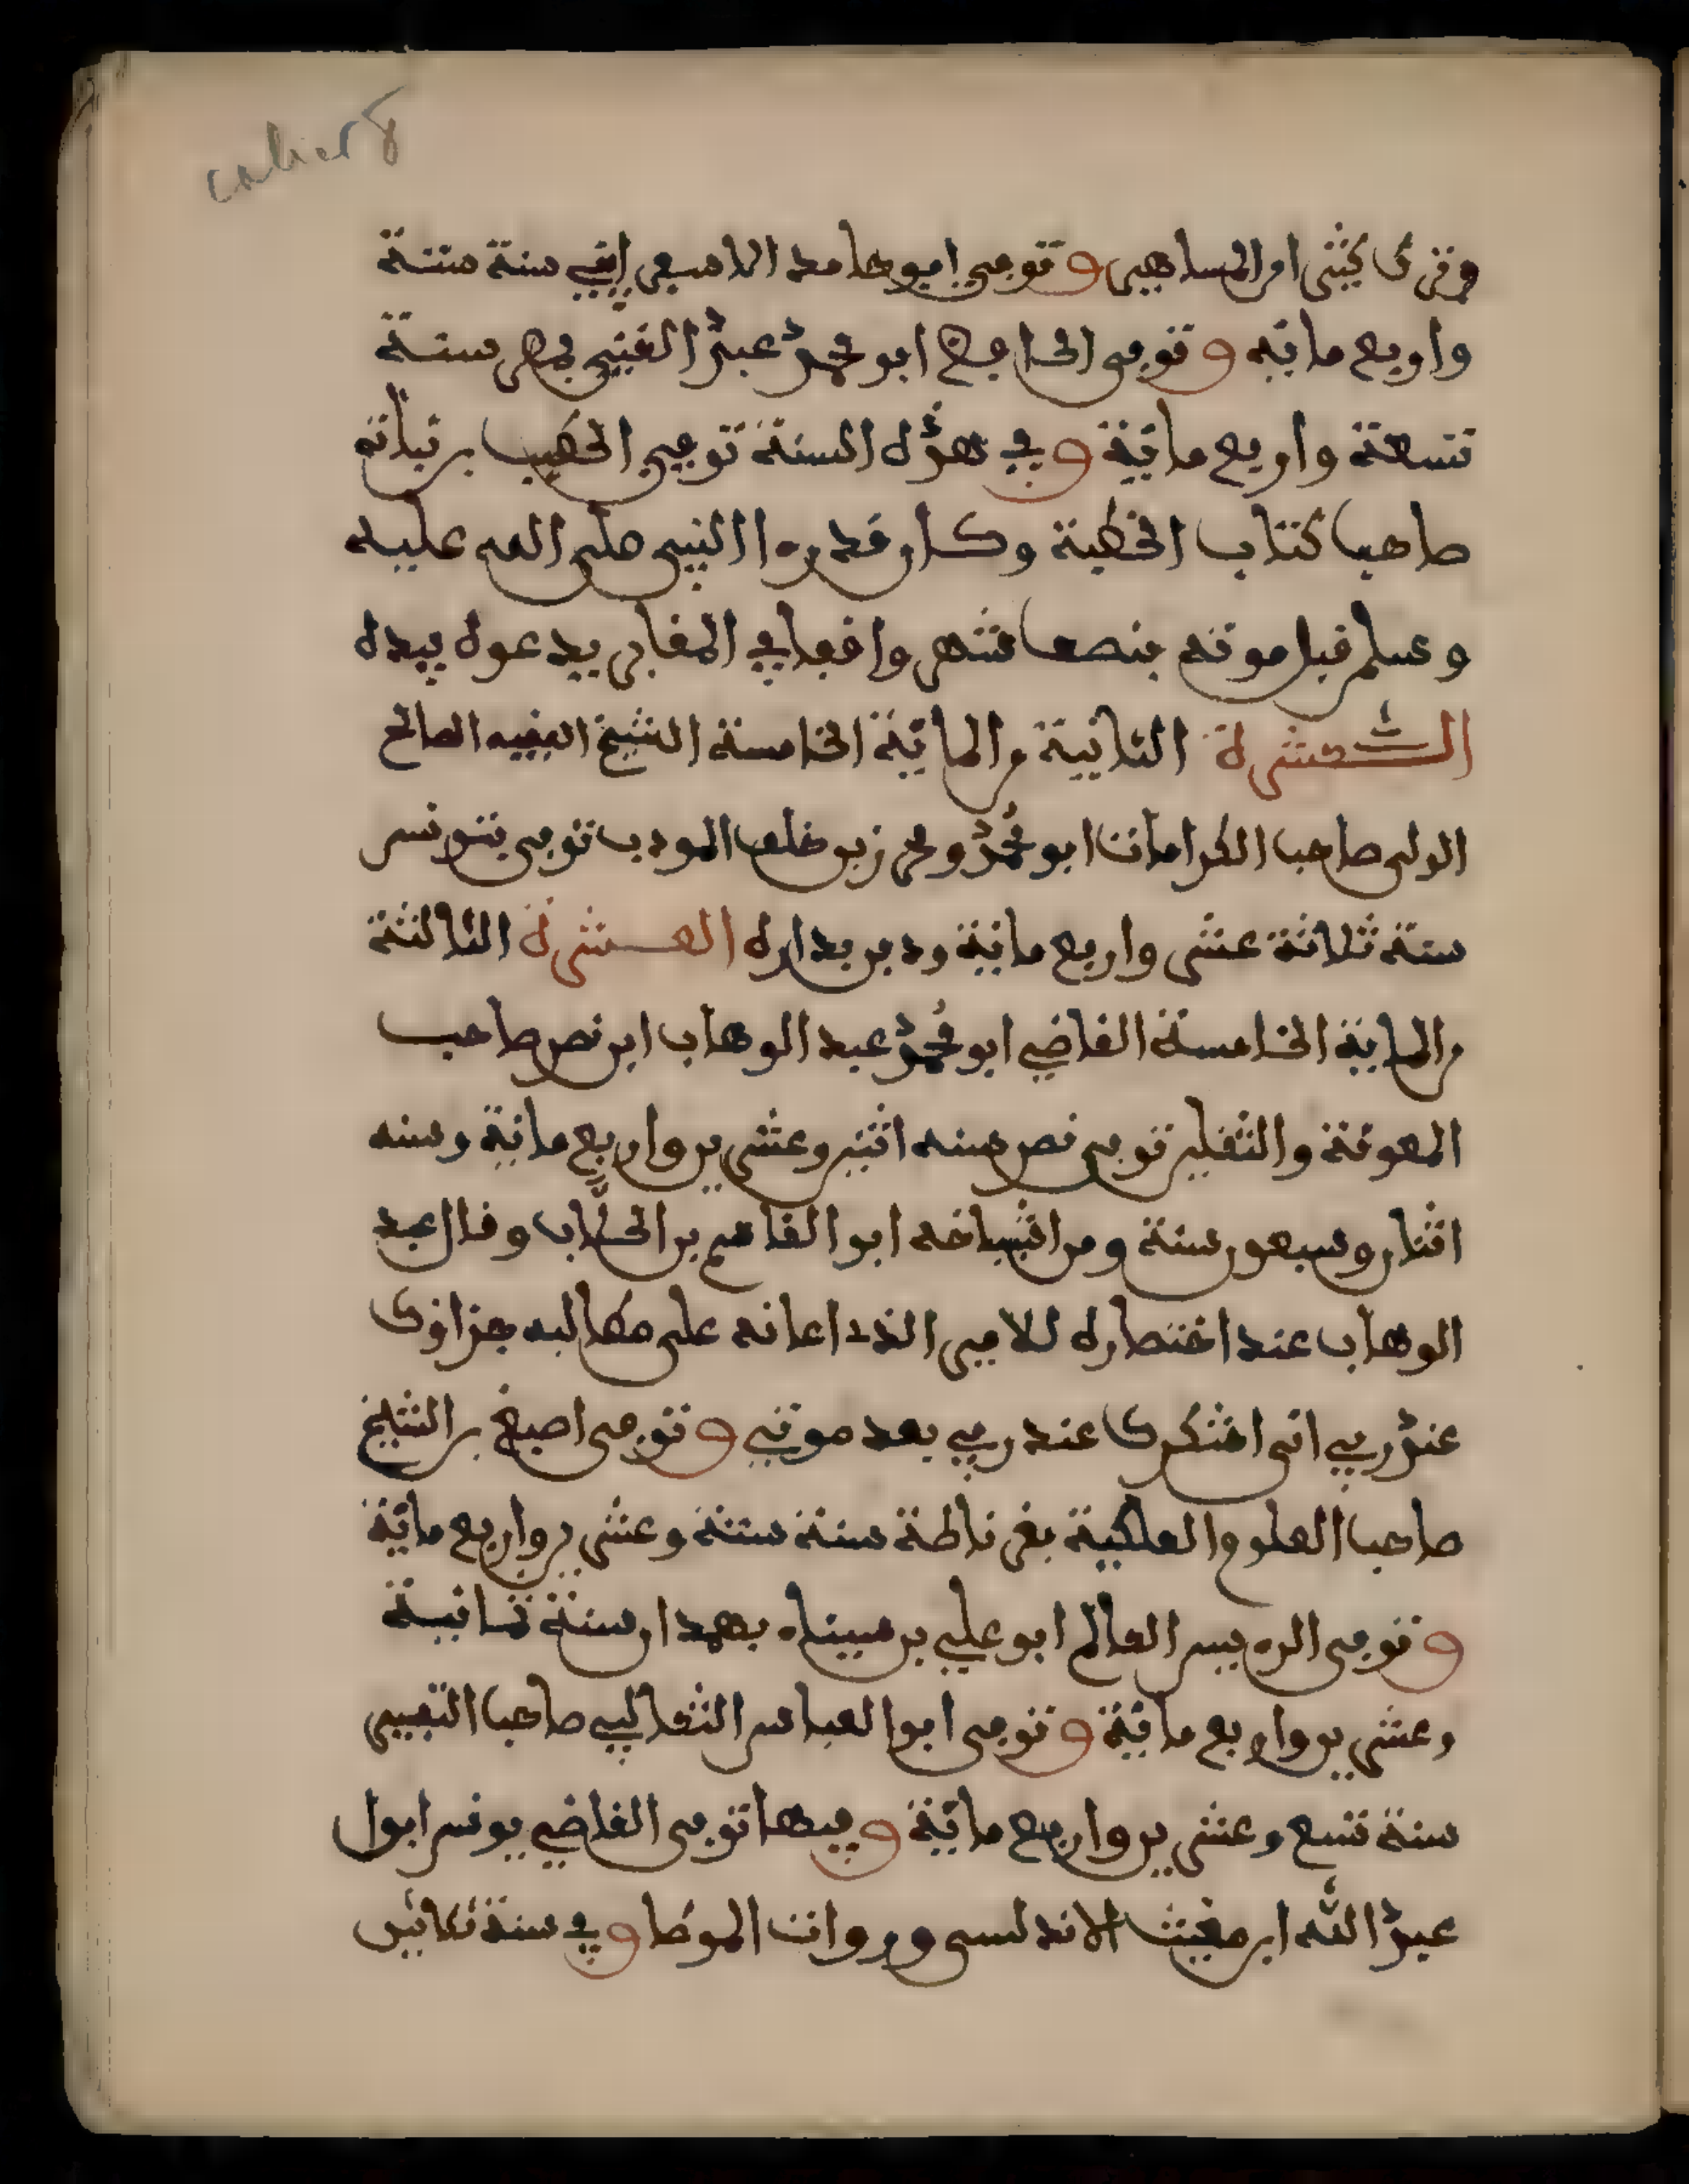 cahier 8
وتوفي ابو حامد الاسفراييني سنة ستة
واربع ماية وتوفي الحافظ ابو محمد عبد الغني بمصر سنة
تسعة واربع ماية وفي هذه السنة توفي الخطيب بن نباتة
صاحب كتاب الخطبة وكان قد رءا النبي صلى الله عليه
وسلم قبل موته بنصف شهر واقفا في المقابر يدعوه بيده
العشرة الثانية من الماية الخامسة الشيخ الفقيه الصالح
الولي صاحب الكرامات ابو محمد ومحرز بن خلف المودب توفي بتونس
سنة ثلاثة عشر واربع ماية ودفن بداره العشرة الثالثة
من الماية الخامسة القاضي ابو محمد عبد الوهاب ابن نصر صاحب
المعونة والتلقين توفي بمصر سنه اثنين وعشرين واربع ماية وسنه
اثنان وسبعون سنة ومن اشياخه ابو القاسم بن الجلاب وقال عبد
الوهاب عند احتضاره للامير الذي اعانه على مطالبه جزاؤك
عند ربي اني اشكرك عند ربي بعد موتي وتوفي اصبغ بن الشيخ
صاحب العلوم الفلكية بغرناطة سنة ستة وعشرين واربع ماية
وتوفي الرءيس العالم ابو علي بن سيناء بهمدان سنة ثمانية
وعشرين واربع ماية وتوفي ابو العباس الثعالبي صاحب التفسير
سنة تسع وعشرين واربع ماية وفيها توفي القاضي يونس ابو ال
عبد الله ابن مغيث الاندلسي وروات الموطا وفي سنة ثلاثين